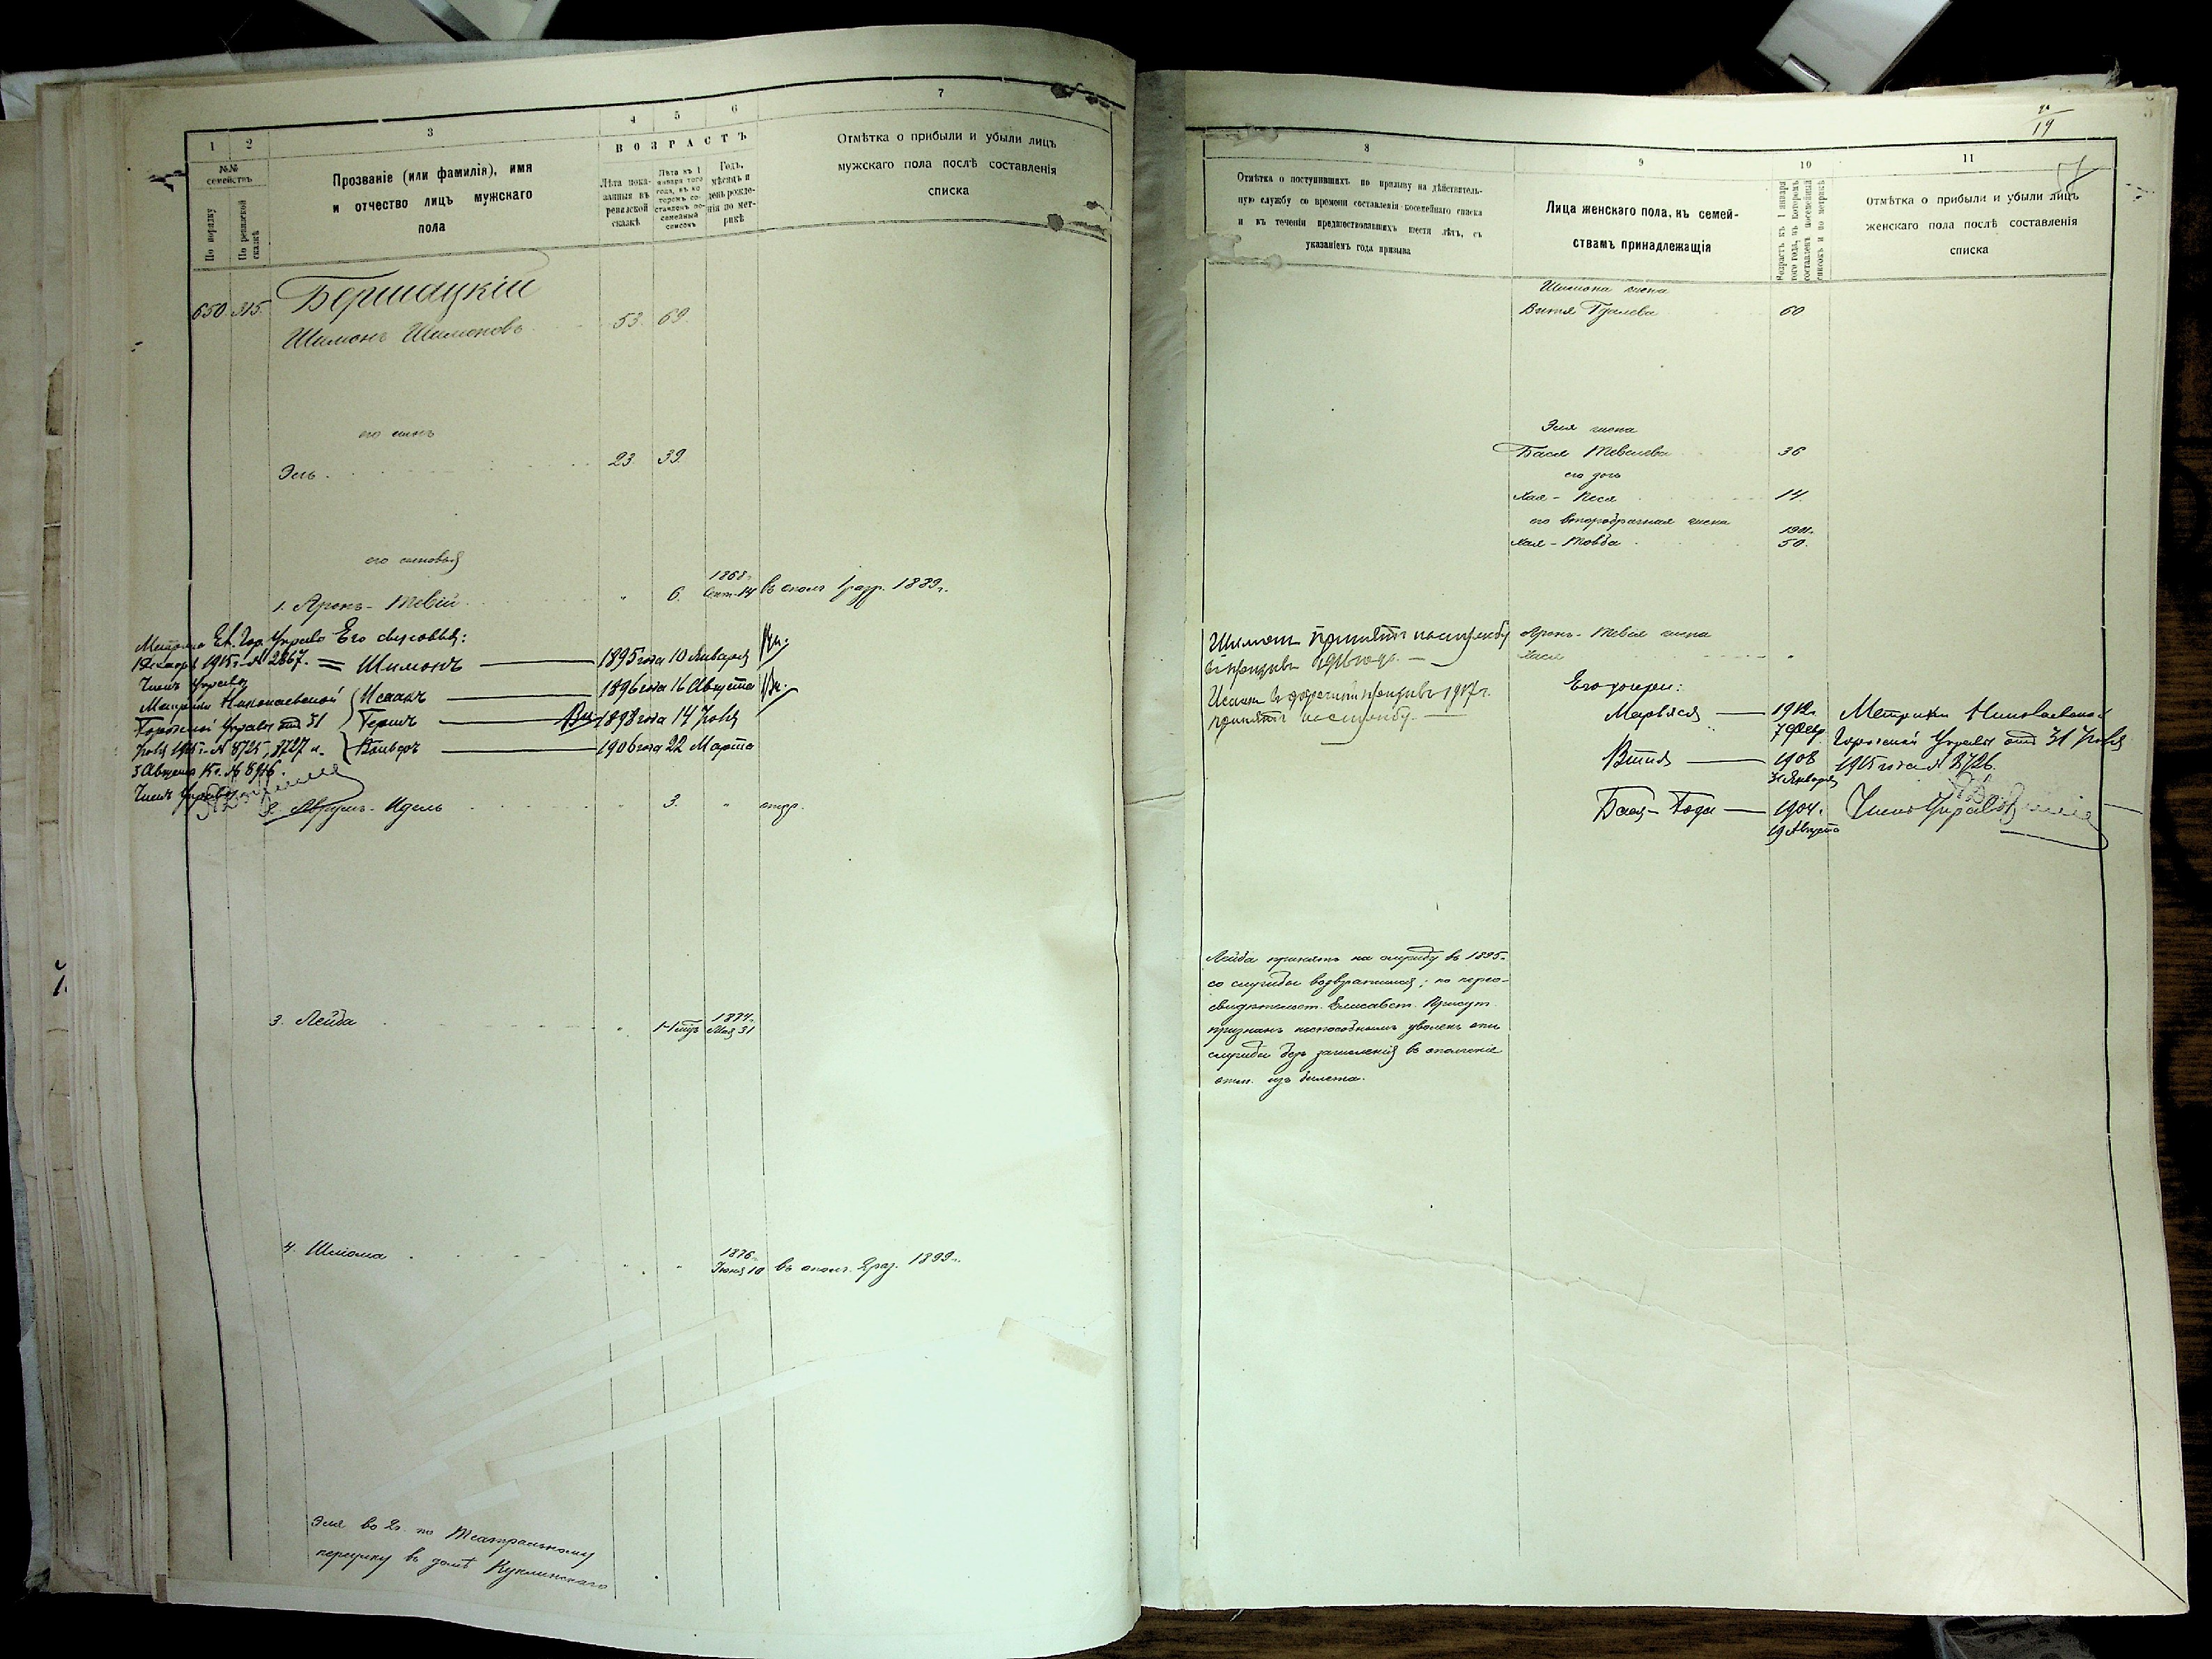 1 2 3 4 5 6 7
№№ семействъ
По порядку
По ревизской сказкѣ
Прозваніе (или фамилія), имя
и отчество лицъ мужскаго
пола
ВОЗРАСТЪ
Лѣта пока-
занныя въ
ревизской
сказкѣ
Лѣта къ 1
января того
года, въ ко-
торомъ со-
ставленъ по-
семейный
списокъ
Годъ,
мѣсяцъ и
день рожде-
нія по мет-
рикѣ
Отмѣтка о прибыли и убыли лицъ
мужскаго пола послѣ составленія
списка
650. 315. Бершацкій
Шимонъ Шимоновъ 53 69.
его сынъ
Эль 23 39.
его сыновья
1. Аронъ-Тевій " 6. 1868г. Сент. 14 въ ополч 1 разр. 1889г.
Метрика Ел. Гор. Управы Его сыновья:
1915г. № 2867. = Шимонъ 1895 года 10 Января
Членъ Управы
Метрики Николаевской Исаакъ 1896 года 16 Августа
Городской Управы отъ 31 Гершъ 1898 года 14 Іюля
Іюля 1915г. № 8725, 8727 и Вольфъ 1906 года 22 Марта
3 Августа 15г. № 8916.
Членъ Управы
2. Аврумъ-Идель " 3. "
3. Лейба " 1 1874г. Мая 31
4. Шлёма " " 1876г. Іюня 10 въ ополч. 2 раз. 1899г.
Эля во 2ч. по Театральному
переулку въ домѣ Куклинскаго
19
8 9 10 11
Отмѣтка о поступившихъ по призыву на дѣйствитель-
ную службу со времени составленія посемейнаго списка
и въ теченіи предшествовавшихъ шести лѣтъ, съ
указаніемъ года призыва
Лица женскаго пола, къ семей-
ствамъ принадлежащія
Возрастъ къ 1 января
того года, въ которомъ
составленъ посемейный
списокъ и по метрикѣ
Отмѣтка о прибыли и убыли лицъ
женскаго пола послѣ составленія
списка
Шимона жена
Витя Гдалева 60
Эля жена
Бася Тевелева 36
его дочь
Хая-Песя 14.
его второбрачная жена
Хая-Товба 1901г. 50.
Шимонъ принятъ на службу Аронъ-Тевія жена
въ призывъ 1916 года. Хася "
Исаакъ въ досрочный призывъ 1917г.
принятъ на службу.
Его дочери:
Марьяся 1912г. 7 Февр. Метрики Николаевской
Витя 1908 31 Января Городской Управы отъ 31 Іюля
1915 года № 8726.
Бася-Года 1904г. 19 Августа Членъ Управы
Лейба принятъ на службу въ 1895г.
со службы возвратился; по перео-
свидѣтельст. Елисавет. Присут.
признанъ неспособнымъ уволенъ отъ
службы безъ зачисленія въ ополченіе
отм. изъ билета.